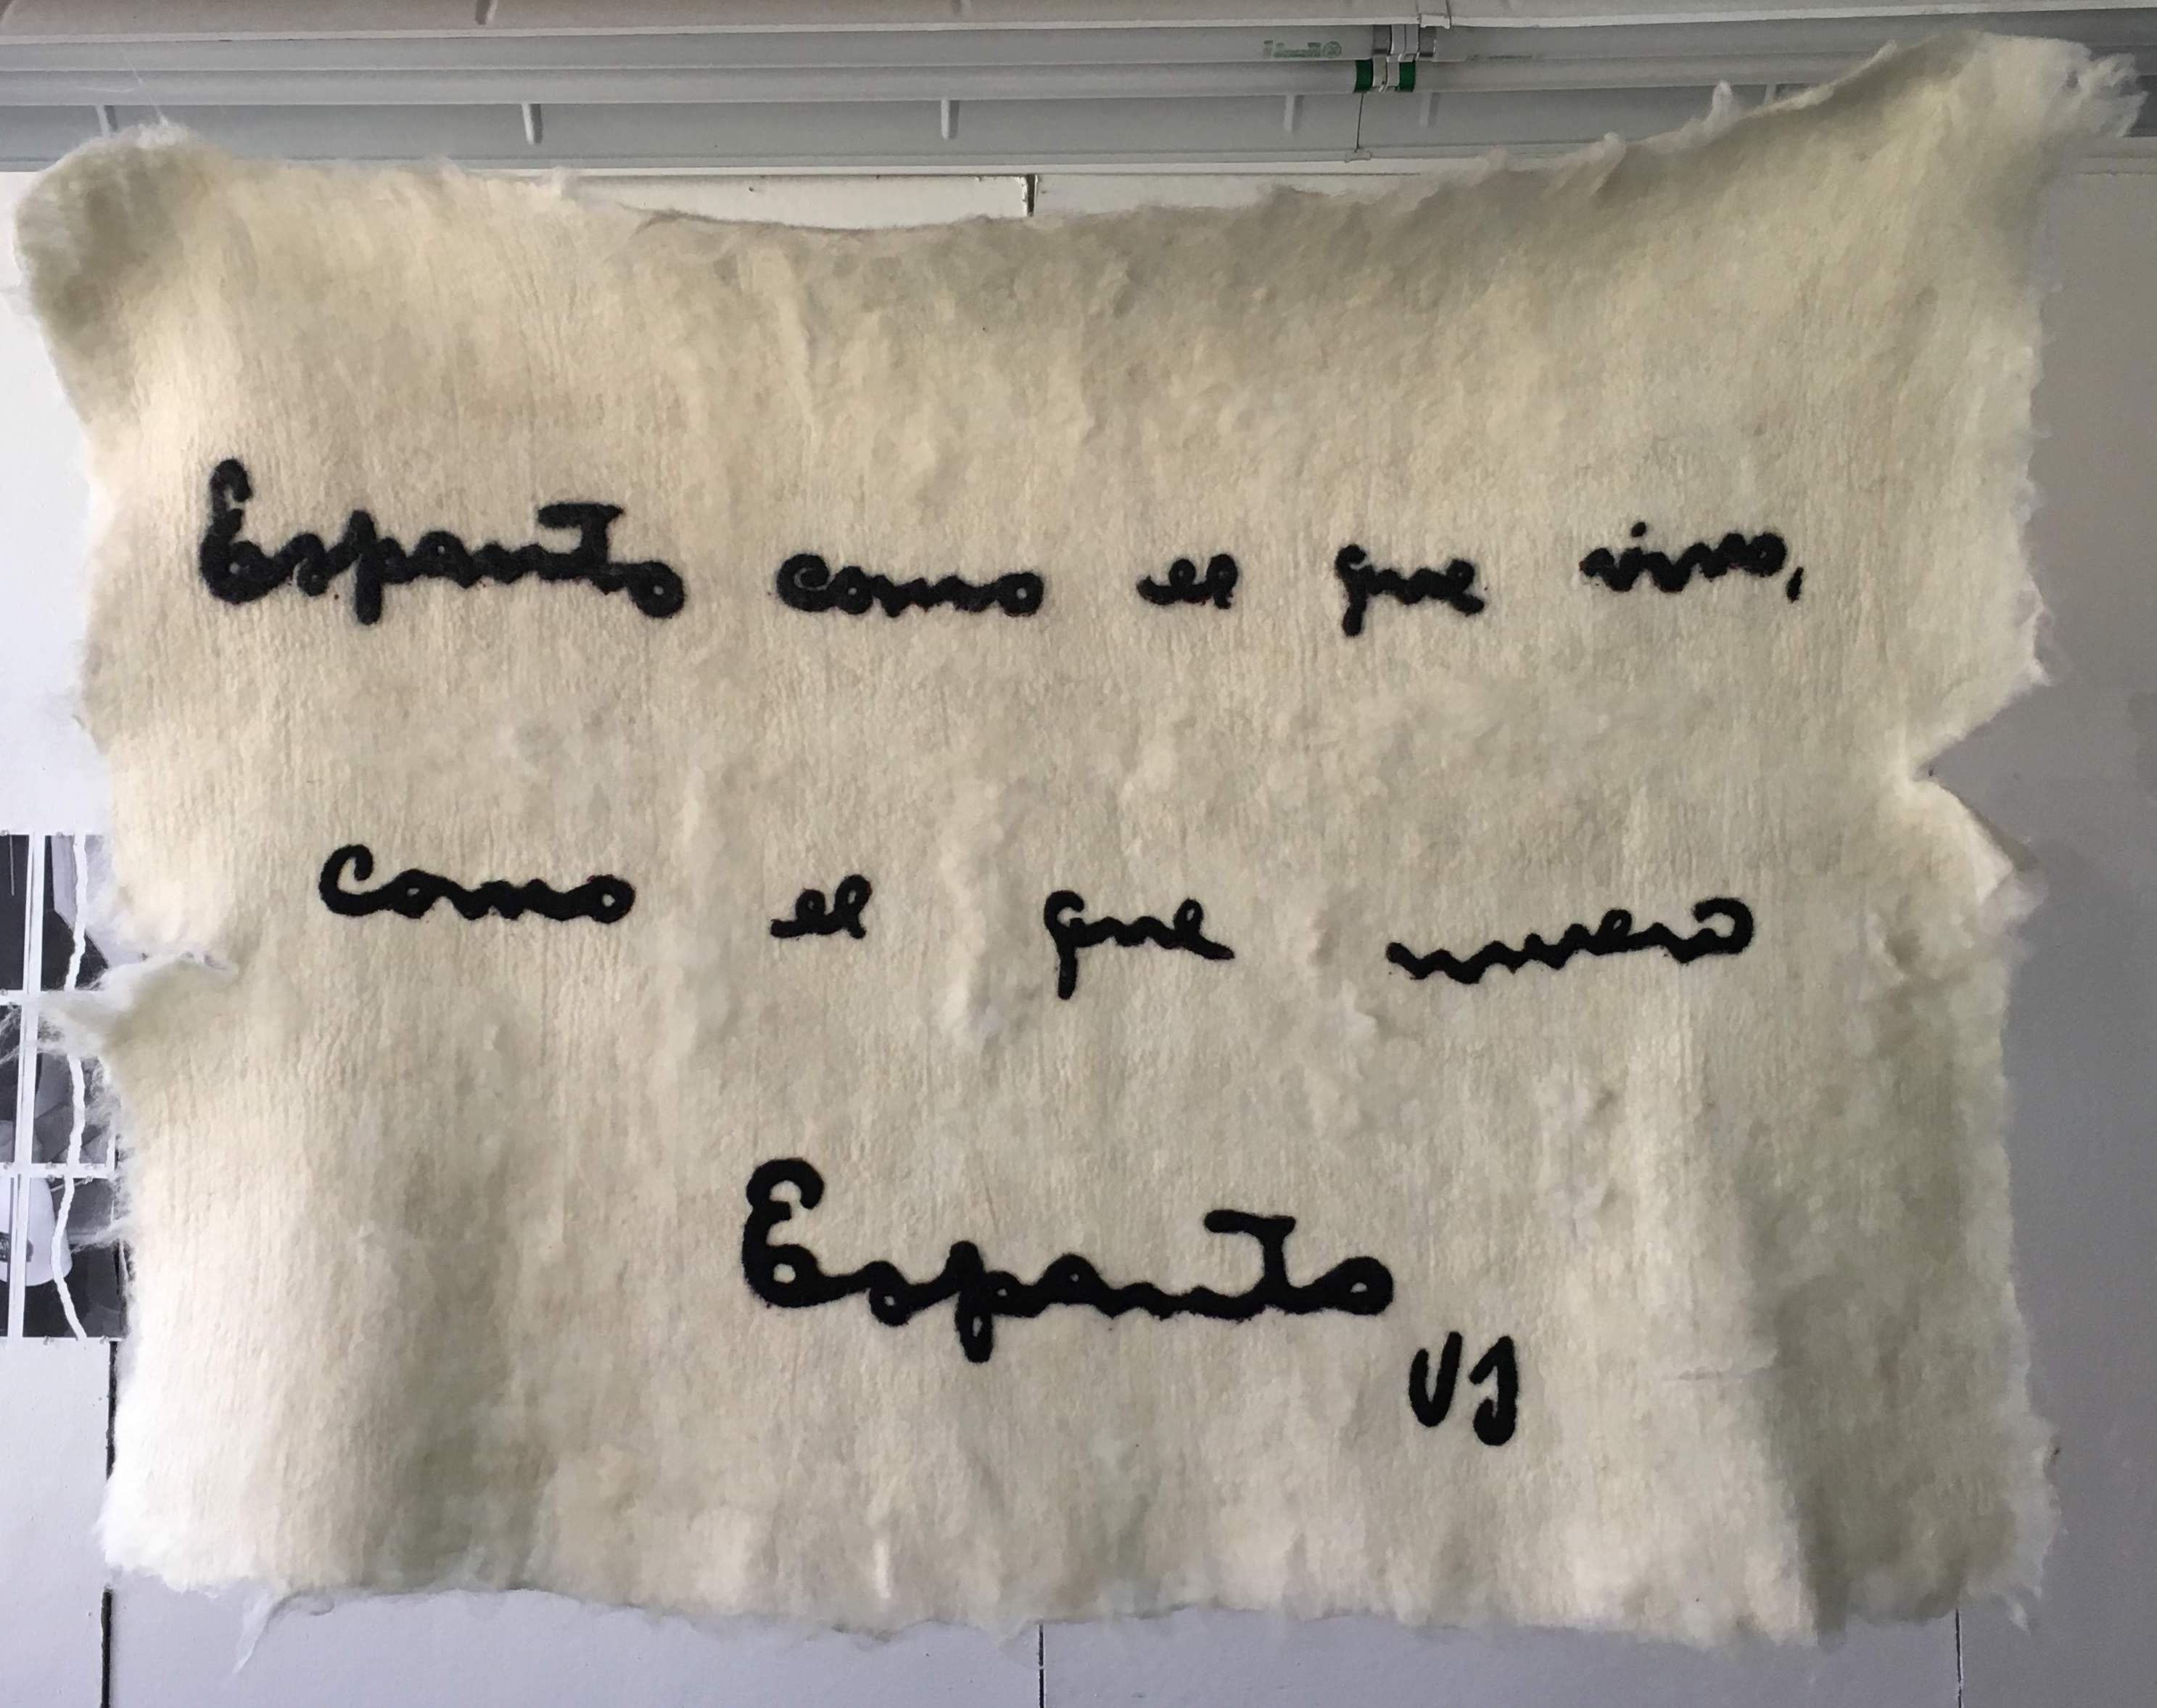 Espanto como el que vivo,
como el que muero
Espanto
VJ